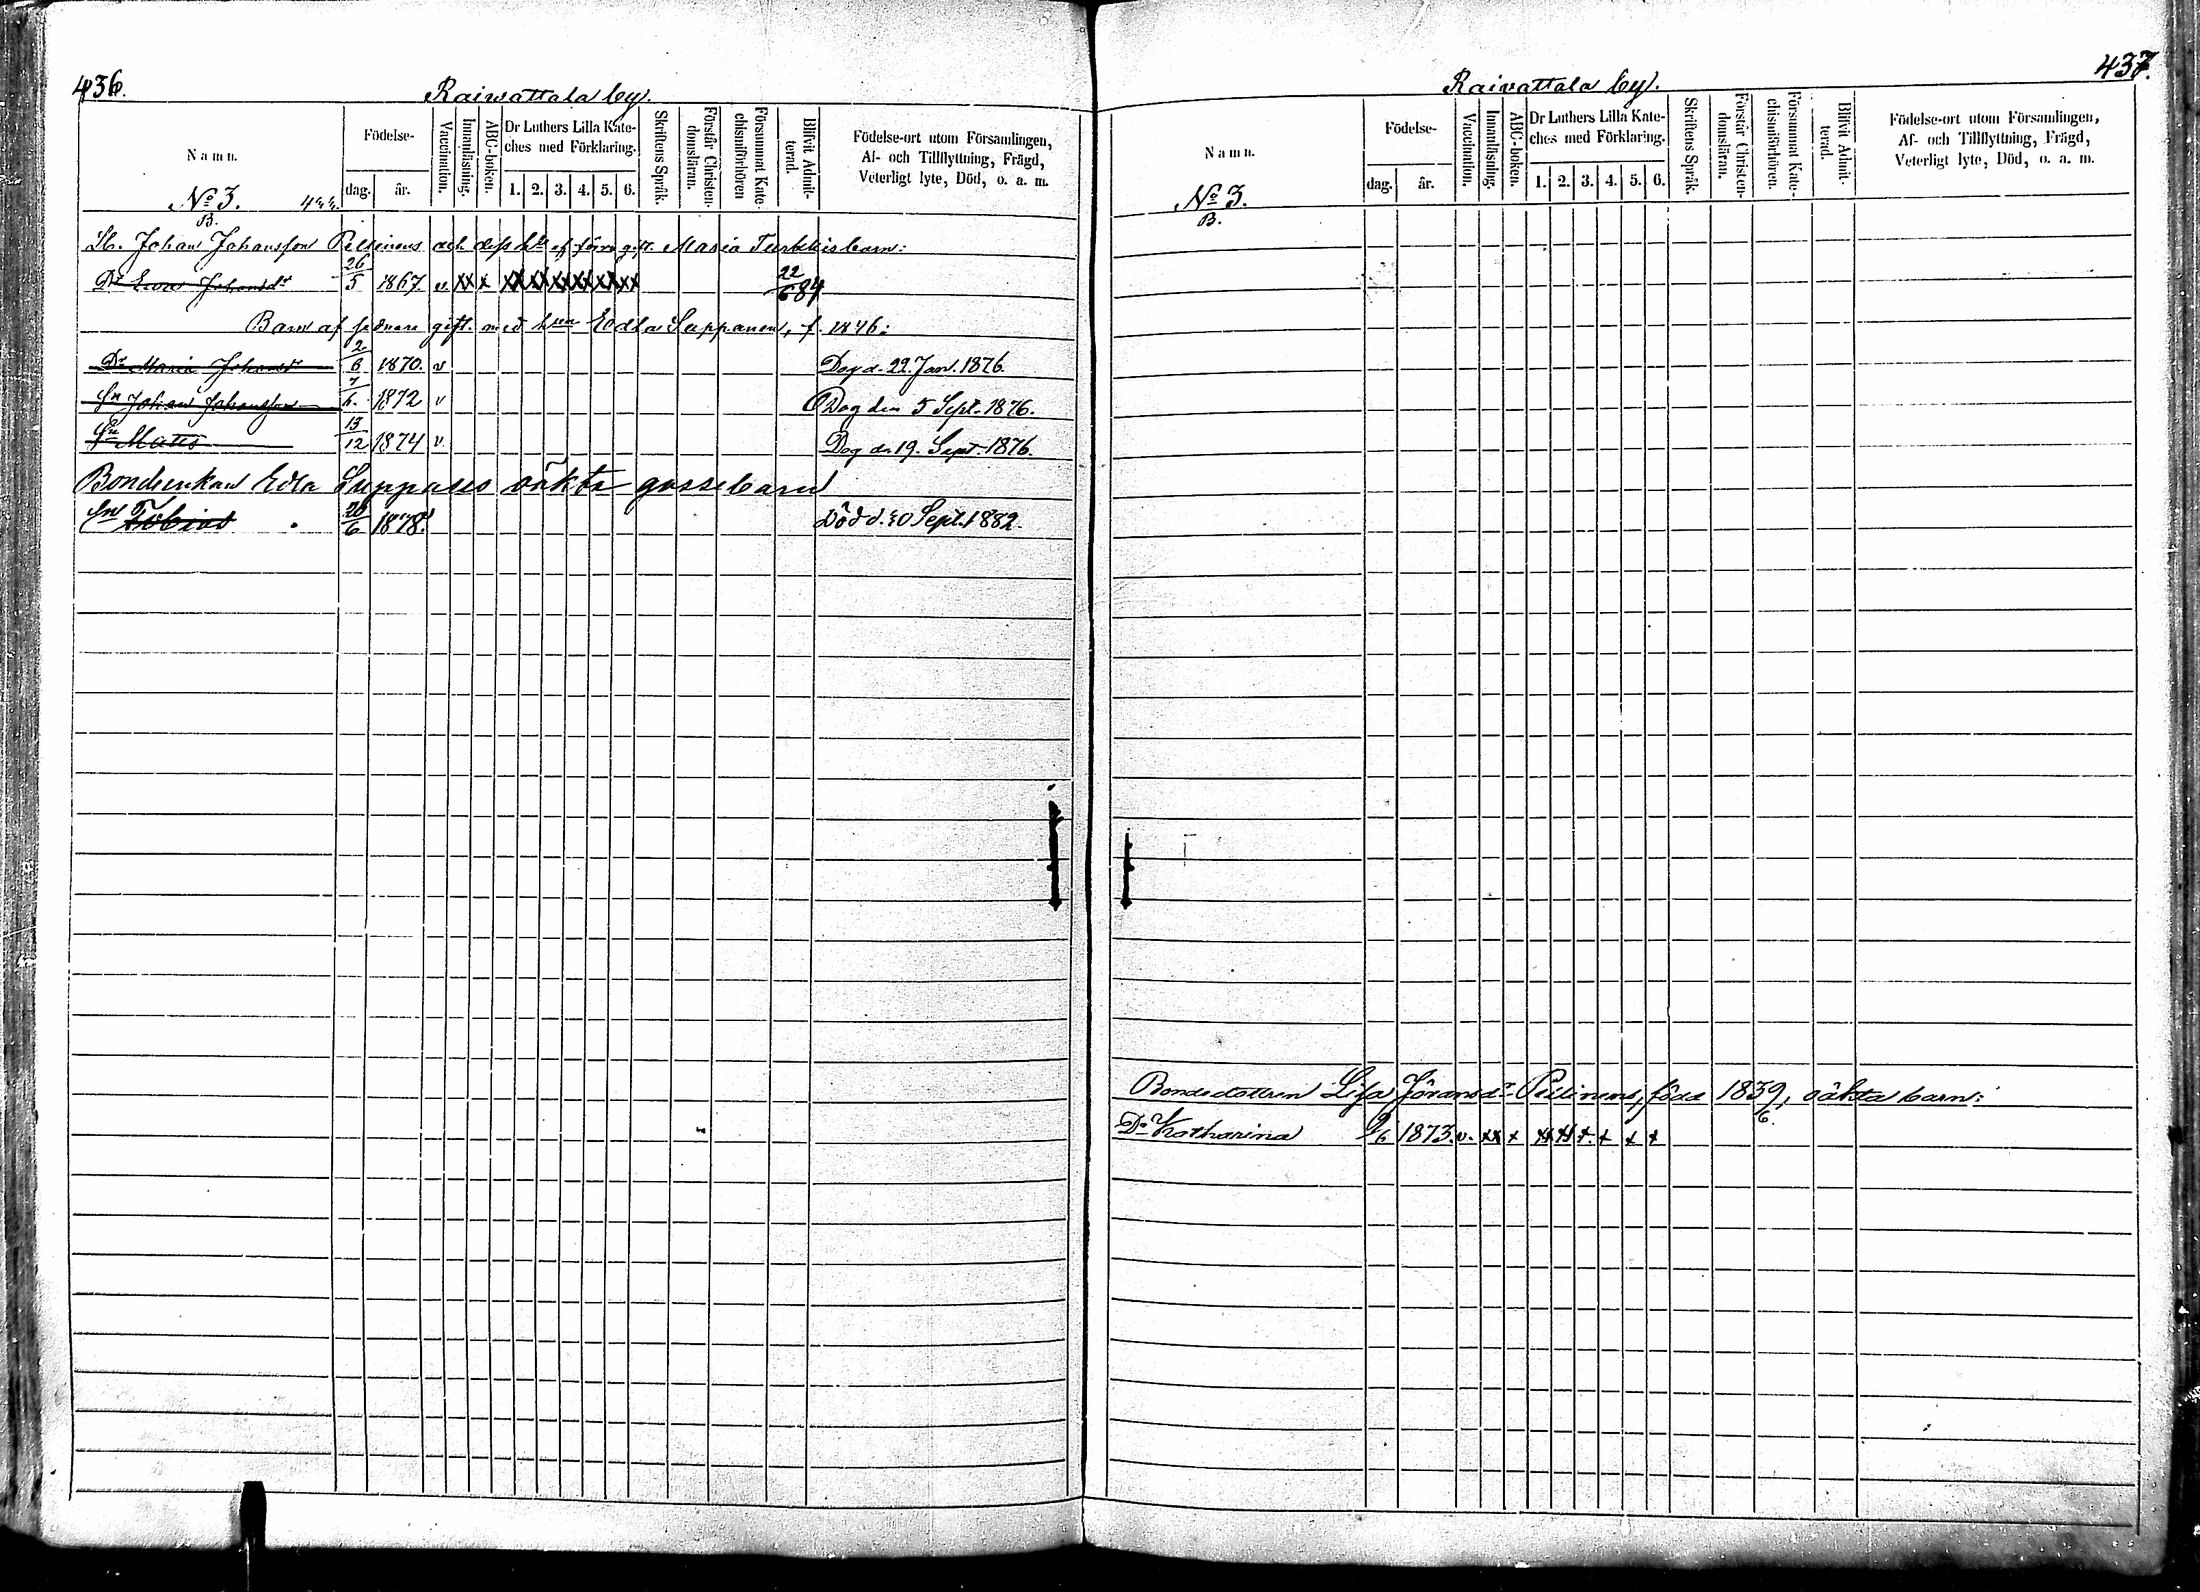 436.
Raiwattala by.
Namn.
Födelse-
dag.
år.
Vaccination.
Innanläsning.
ABC-boken.
Dr Luthers Lilla Kate-
ches med Förklaring.
1. 2. 3. 4. 5. 6.
Skriftens Språk.
Förstår Christen-
domsläran.
Försummat Kate-
chismiförhören
Blifvit Admit-
terad.
Födelse-ort utom Församlingen,
Af- och Tillflyttning, Frägd,
Veterligt lyte, Död, o. a. m.
No 3.
B.
Johan Johansson Peilinens och dess af förra gift. Maria Turkkis barn:
Dr Eva Johansdr 26/5 1867 v xx x xx xx xx xx xx xx 22/6 84
Barn af sednare gift. med hun Edla Suppanen, f. 1846:
Dr Maria Johansdr 2/6 1870. v Dog d. 22. Jan. 1876.
Sn Johan Johansson 7/6. 1872 v Dog den 5 Sept. 1876.
Sn Matts 13/12 1874 v. Dog den 19. Sept. 1876.
Bondeenkan Edla Suppanens oäkta gossebarn
Sn Tobias 20/6 1878. v Död d. 30 Sept. 1882.
437.
Raivattala by.
Namn.
Födelse-
dag.
år.
Vaccination.
Innanläsning.
ABC-boken.
Dr Luthers Lilla Kate-
ches med Förklaring.
1. 2. 3. 4. 5. 6.
Skriftens Språk.
Förstår Christen-
domsläran.
Försummat Kate-
chismiförhören.
Blifvit Admit-
terad.
Födelse-ort utom Församlingen,
Af- och Tillflyttning, Frägd,
Veterligt lyte, Död, o. a. m.
No 3.
B.
Bondedottren Lisa Jöransdr Peilinens, född 1839, 9/6. oäkta barn:
Dr Katharina 9/6 1873. v. xx x xx xx x x x x